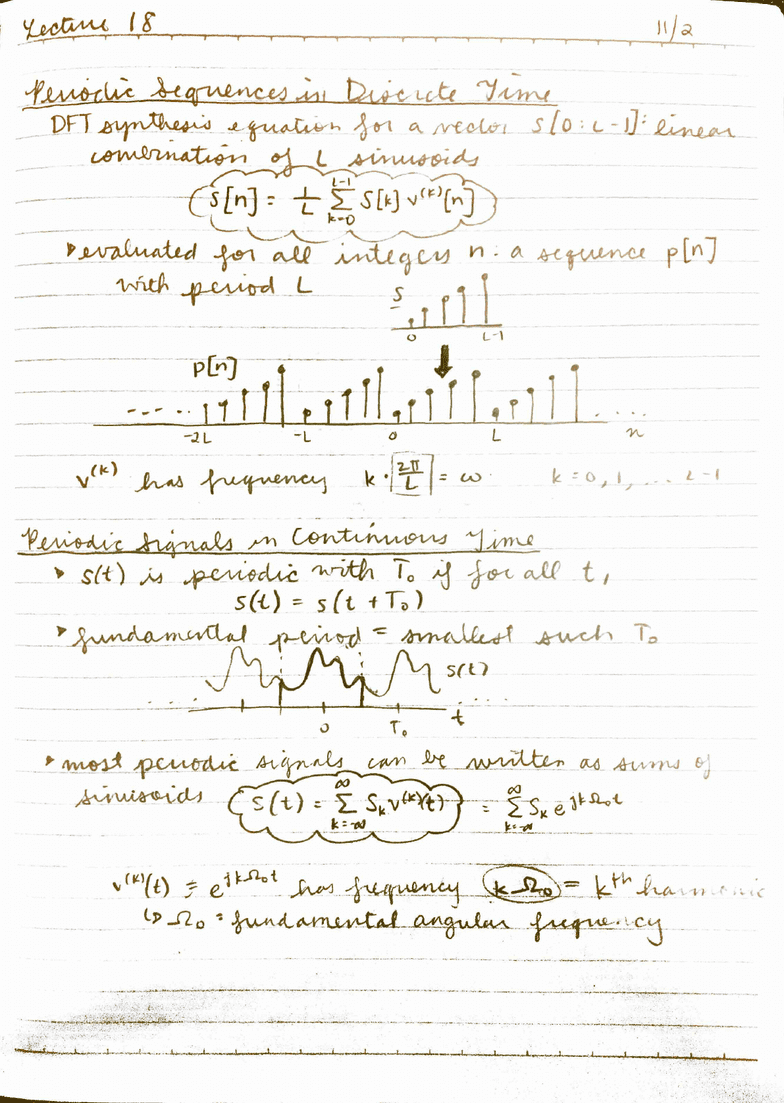 Lecture 18 11/2
Periodic Sequences in Discrete Time
DFT synthesis equation for a vector s[0:L-1]: linear
combination of L sinusoids
s[n] = 1/L Σ_{k=0}^{L-1} S[k] v^(k)[n]
▸ evaluated for all integers n: a sequence p[n]
with period L
s
0 L-1
p[n]
-2L -L 0 L n
v^(k) has frequency k·|2π/L| = ω k=0,1,... L-1
Periodic Signals in Continuous Time
▸ s(t) is periodic with T₀ if for all t,
s(t) = s(t + T₀)
▸ fundamental period = smallest such T₀
s(t)
0 T₀ t
▸ most periodic signals can be written as sums of
sinusoids s(t) = Σ_{k=-∞}^{∞} S_k v^(k)(t) = Σ_{k=-∞}^{∞} S_k e^{jkΩ₀t}
v^(k)(t) = e^{jkΩ₀t} has frequency kΩ₀ = kth harmonic
↳ Ω₀ = fundamental angular frequency